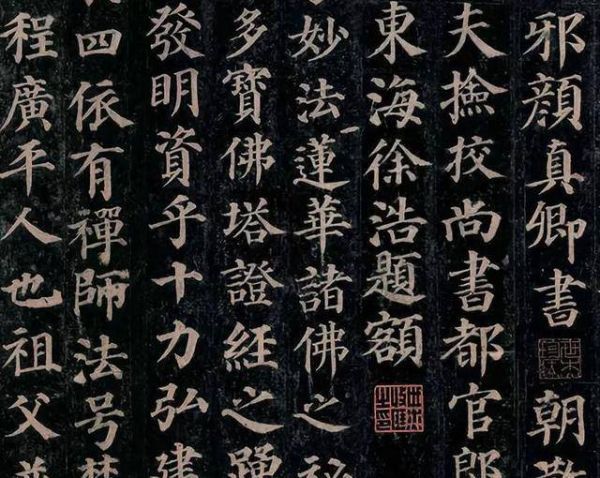 邪顏真卿書 朝
夫撿挍尚書都官郎
東海徐浩題額
妙法蓮華諸佛之秘
多寶佛塔證經之踴
發明資乎十力弘建
四依有禪師法号
程廣平人也祖父